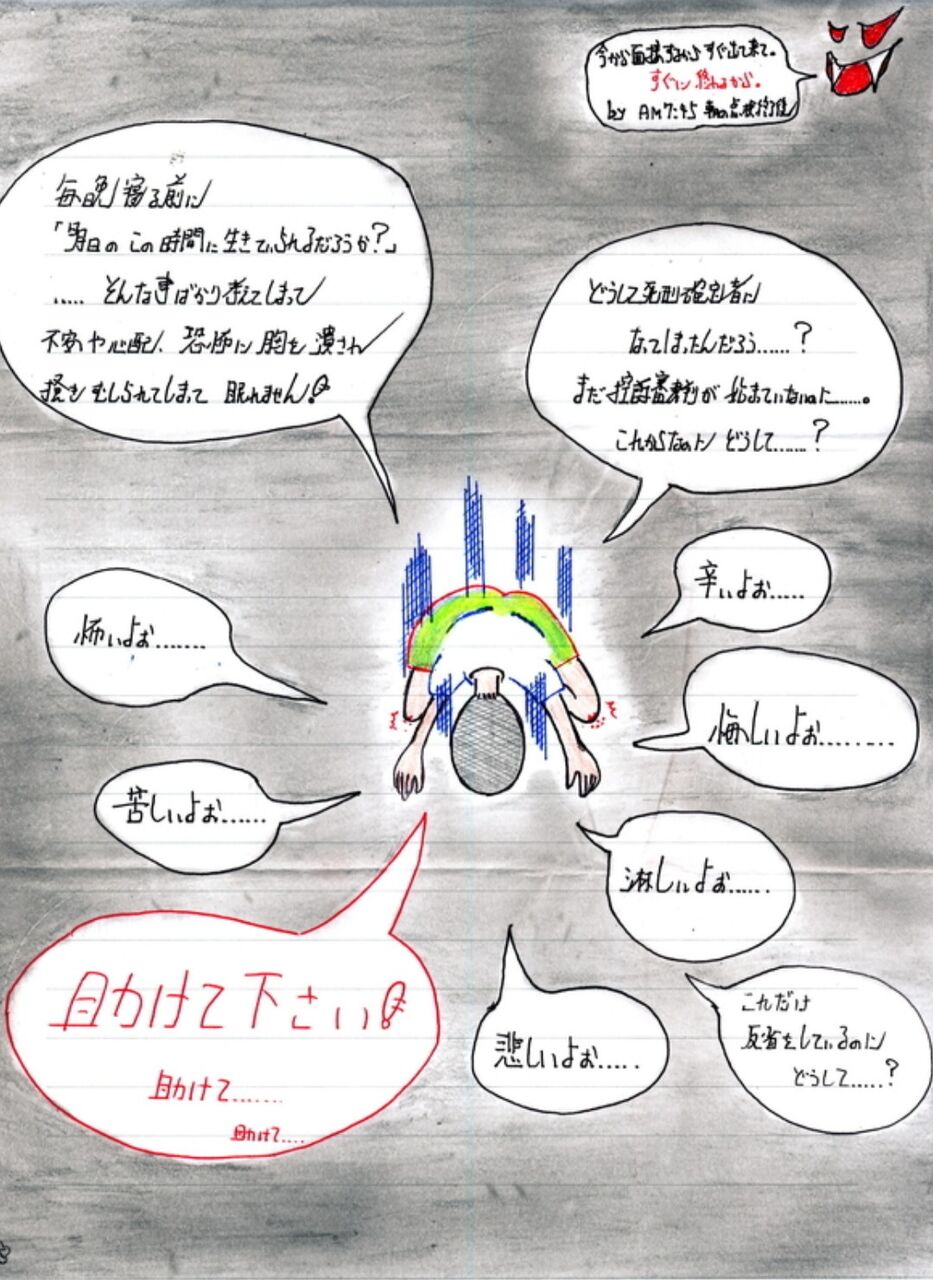 今から面接するからすぐ出て来て。
すぐに終わるから。
by AM7:45 朝の点検終了後
毎日晩寝る前に
「明日のこの時間に生きていられるだろうか?」
..... そんな事ばかり考えてしまって
不安や心配、恐怖に胸を潰され
掻きむしられてしまって 眠れません!
どうして死刑確定者に
なってしまったんだろう......?
まだ控訴審裁判が始まていないのに.......。
これからなのに どうして......?
怖いよぉ.......
辛いよぉ.....
悔しいよぉ........
苦しいよぉ......
淋しいよぉ......
助けて下さい!
助けて.......
助けて....
悲しいよぉ.....
これだけ
反省をしているのに
どうして.....?